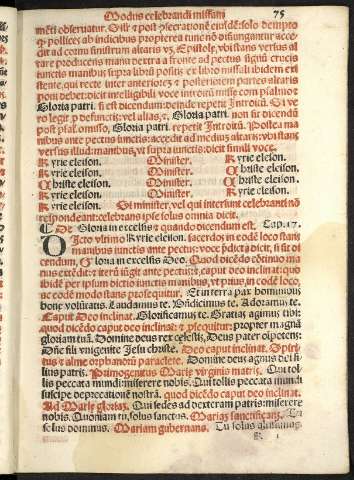 Modus celebrandi missam 75
mēti obseruatur. Ille
pollices ab indicibus propterea tunc nō disiungantur: acce-
dit ad cornu sinistrum altaris vȝ. Epistole, vbi stans versus al
tare producens manu dextra a fronte ad pectus signū crucis
iunctis manibus supra librū positis ex libro missali ibidem exi
stente, qui recte inter anteriorēȝ & posteriorem partes altaris
poni debet: dicit intelligibili voce introitū misse cum psalmo &
Gloria patri. si est dicendum: deinde repetit Introitū. Si ve
ro legit p defunctis: vel alias, & Gloria patri. non sit dicendū
post psal. omisso, Gloria patri. repetit Introitū. Postea ma
nibus ante pectus iunctis: accedit ad medium altaris: vbi stans
versus illud: manibus, vt supra iunctis: dicit simili voce.
Kyrie eleison. Minister. Kyrie eleison.
Kyrie eleison. Minister. Christe eleison.
Christe eleison. Minister. Christe eleison.
Kyrie eleison. Minister. Kyrie eleison.
Kyrie eleison. Si minister, vel qui intersunt celebranti nō
respondeant: celebrans ipse solus omnia dicit.
De Gloria in excelsis & quando dicendum est. Cap. 17.
Dicto vltimo Kyrie eleison. sacerdos in eodē loco stans
manibus iunctis ante pectus: voce pdicta dicit, si sit di
cendum, Gloria in excelsis Deo. Quod dicēdo cōtinuo ma
nus extēdit: & iterū iūgit ante pectus: & caput deo inclinat: quo
ibidē per ipsum dictio iunctis manibus, vt prius, in eodē loco,
ac eodē modo stans prosequitur. Et in terra pax hominibus
bone volūtatis. Laudamus te. Bñdicimus te. Adoramus te.
Caput Deo inclinat. Glorificamus te. Gratias agimus tibi:
quod dicēdo caput deo inclinat: & psequitur: propter magnā
gloriam tuā. Domine deus rex celestis, Deus pater oīpotens:
Dñe fili vnigenite Jesu christe. Deo caput inclinat. Spiri-
tus & alme orphanorū paraclete. Domine deus agnus dei fi
lius patris. Primogenitus Marie virginis matris. Qui tol
lis peccata mundi: miserere nobis. Qui tollis peccata mundi
suscipe deprecationē nostrā. quod dicēdo caput deo inclinat.
Ad Marie gloriaȝ. Qui sedes ad dexteram patris: miserere
nobis. Quoniam tu solus sanctus. Mariam sanctificans. Tu
solus dominus. Mariam gubernans. Tu solus altissimus.